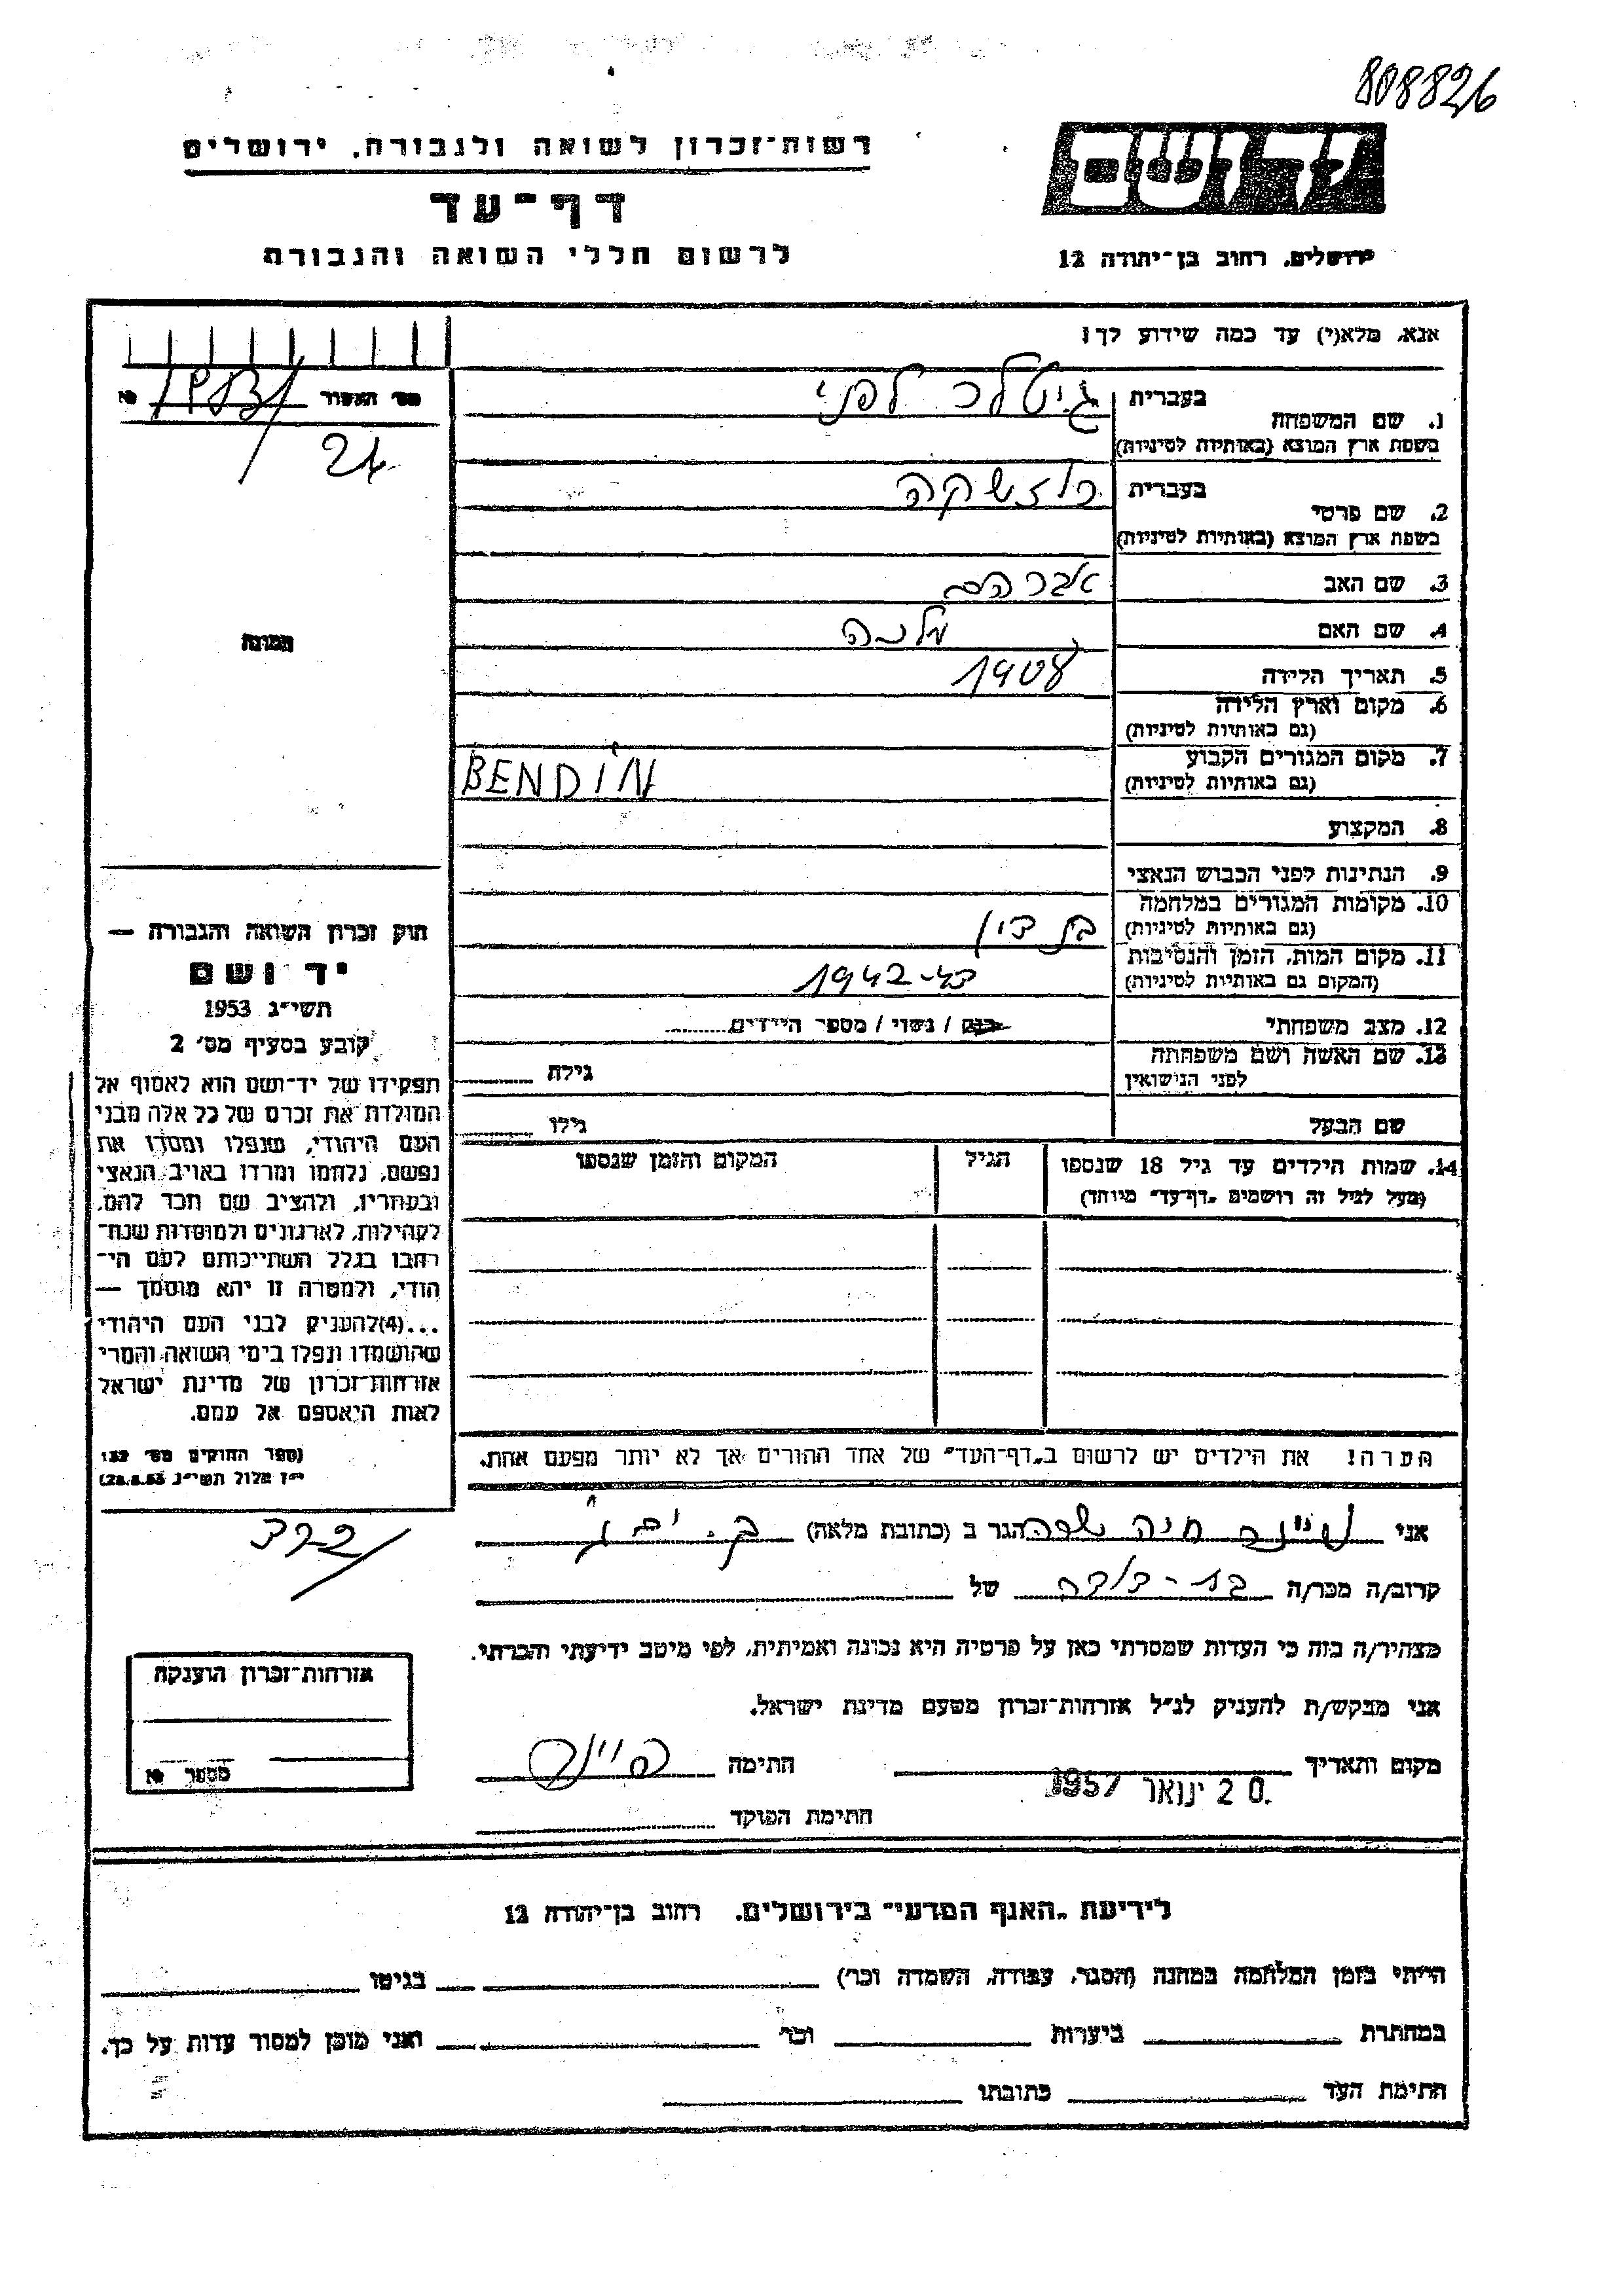 808826
רשות־זכרון לשואה ולגבורה, ירושלים
יד ושם
דף־עד
לרשום חללי השואה והגבורה
ירושלים, רחוב בן־יהודה 12
אנא, מלא(י) עד כמה שידוע לך!
מס׳ האשור №
24
1. שם המשפחה
בעברית
בשפת ארץ המוצא (באותיות לטיניות)
2. שם פרטי
בעברית
בשפת ארץ המוצא (באותיות לטיניות)
3. שם האב אברהם
4. שם האם מלכה
5. תאריך הלידה 1908
6. מקום וארץ הלידה
(גם באותיות לטיניות)
7. מקום המגורים הקבוע
(גם באותיות לטיניות) BENDIN
8. המקצוע
9. הנתינות לפני הכבוש הנאצי
10. מקומות המגורים במלחמה
(גם באותיות לטיניות) בנדין
11. מקום המות, הזמן והנסיבות
(המקום גם באותיות לטיניות) 1942-43
12. מצב משפחתי רווק / נשוי / מספר הילדים
13. שם האשה ושם משפחתה
לפני הנישואין גילה
שם הבעל גילו
14. שמות הילדים עד גיל 18 שנספו הגיל המקום והזמן שנספו
(מעל לגיל זה רושמים „דף־עד״ מיוחד)
הערה! את הילדים יש לרשום ב„דף־העד״ של אחד ההורים אך לא יותר מפעם אחת.
תמונה
חוק זכרון השואה והגבורה —
יד ושם
תשי״ג 1953
קובע בסעיף מס׳ 2
תפקידו של יד־ושם הוא לאסוף אל
המולדת את זכרם של כל אלה מבני
העם היהודי, שנפלו ומסרו את
נפשם, נלחמו ומרדו באויב הנאצי
ובעוזריו, ולהציב שם וזכר להם,
לקהילות, לארגונים ולמוסדות שנח־
רבו בגלל השתייכותם לעם הי־
הודי, ולמטרה זו יהא מוסמך —
...(4) להעניק לבני העם היהודי
שהושמדו ונפלו בימי השואה והמרי
אזרחות־זכרון של מדינת ישראל
לאות היאספם אל עמם.
(ספר החוקים מס׳ 132
י״ז אלול תשי״ג 28.8.53)
אני חנה הגר ב (כתובת מלאה)
קרוב/ה מכר/ה בת-דודה של
מצהיר/ה בזה כי העדות שמסרתי כאן על פרטיה היא נכונה ואמיתית, לפי מיטב ידיעתי והכרתי.
אני מבקש/ת להעניק לנ״ל אזרחות־זכרון מטעם מדינת ישראל.
מקום ותאריך 20 ינואר 1957 חתימה
חתימת הפוקד
אזרחות־זכרון הוענקה
מספר №
לידיעת „האגף המדעי״ בירושלים. רחוב בן־יהודה 12
הייתי בזמן המלחמה במחנה (הסגר, עבודה, השמדה וכו׳) בגיטו
במחתרת ביערות וכו׳ ואני מוכן למסור עדות על כך.
חתימת העד כתובתו